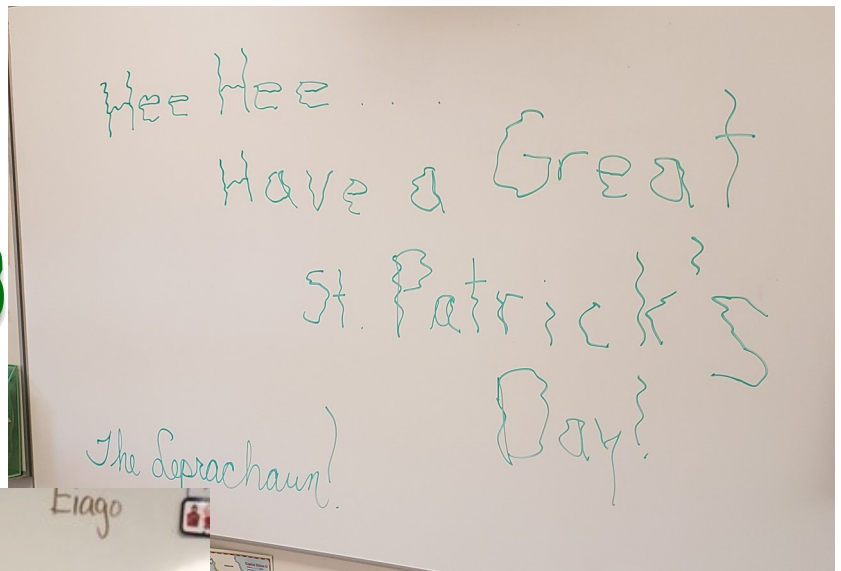 Hee Hee....
Have a Great
St. Patrick's
Day!
The Leprachaun!